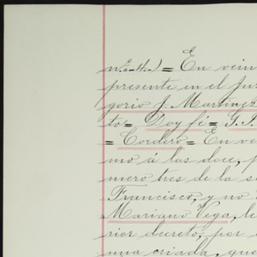 En vein
presente en el Juz
gorio J. Martinez
to= Doy fé= G. J.
= Cordero= En ve
mo á las doce, p
mero tres de la s
Francisco, y no
Mariano Vega, le
rior decreto, por
una criada, que